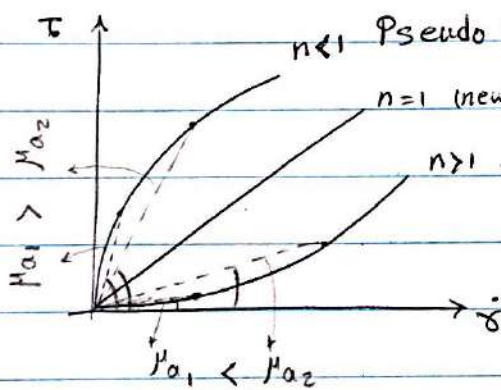 τ
n<1 Pseudo
n=1 (new
n>1
μa1 > μa2
γ̇
μa1 < μa2